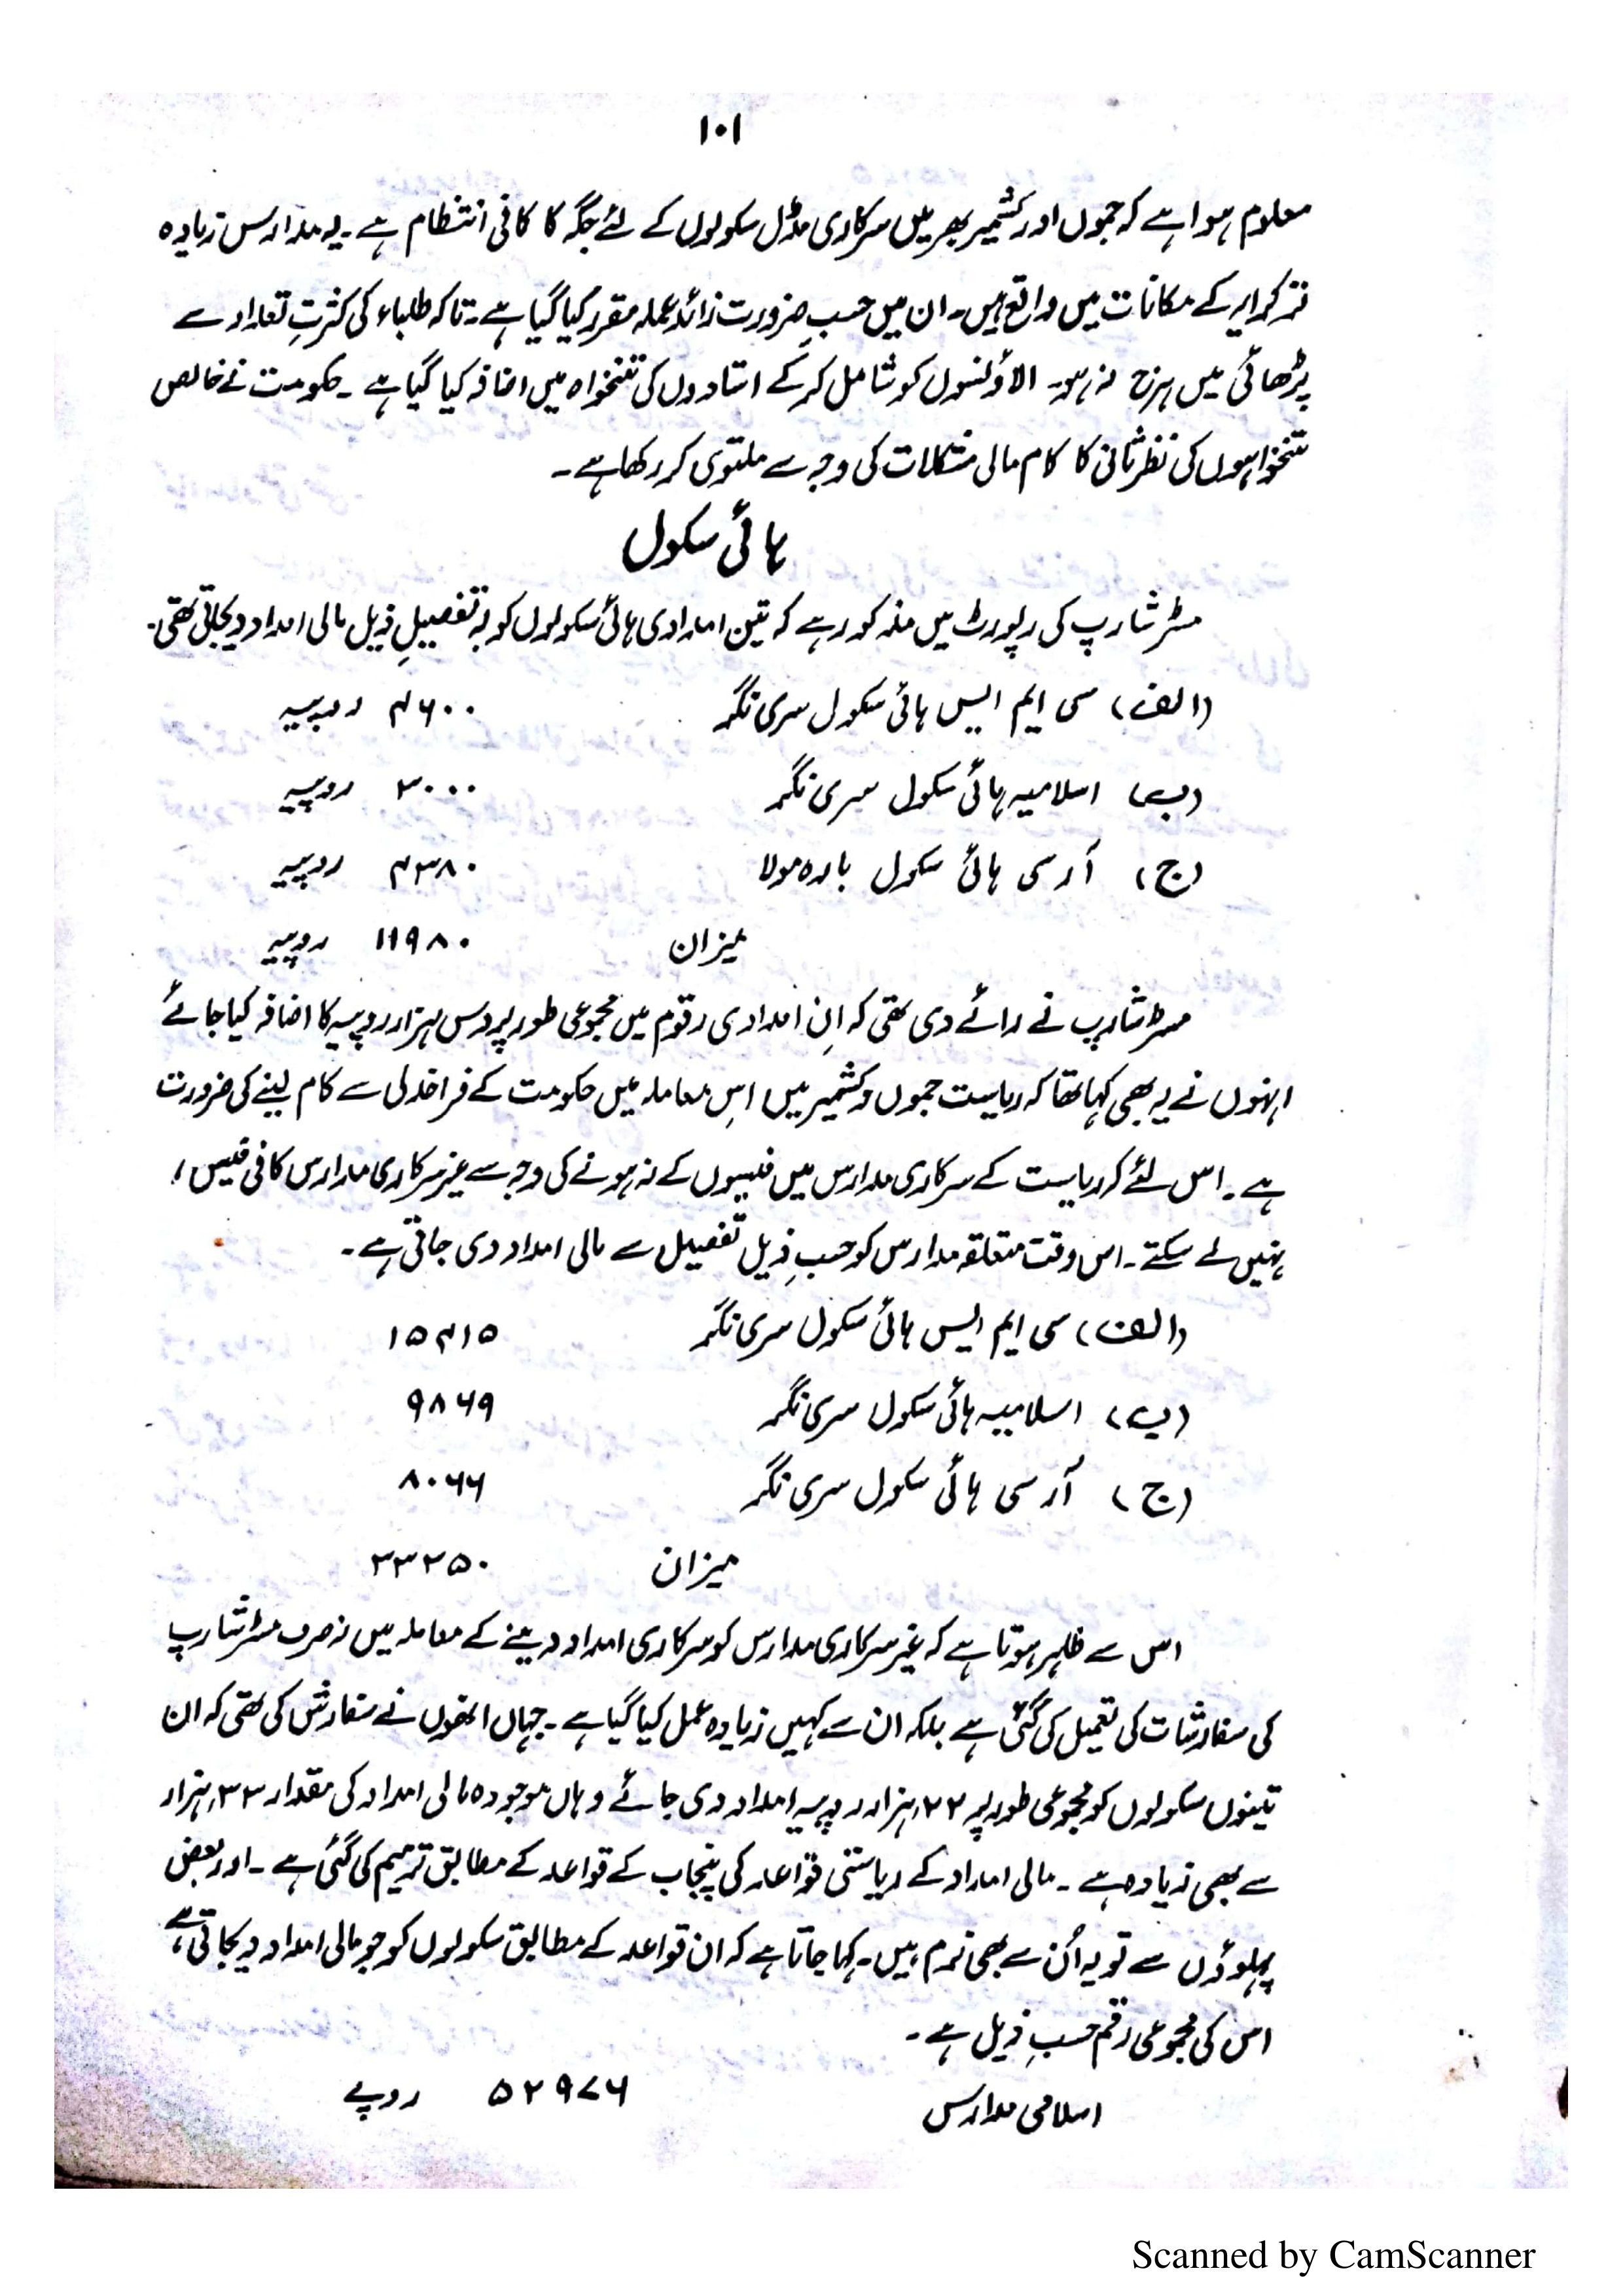 ۱۰۱
معلوم ہوا ہے کہ جموں اور کشمیر بھر میں سرکاری مڈل سکولوں کے لئے جگہ کا کافی انتظام ہے۔ یہ مدارس زیادہ
تر کرایہ کے مکانات میں واقع ہیں۔ ان میں حسبِ ضرورت زائد عملہ مقرر کیا گیا ہے۔ تاکہ طلباء کی کثرتِ تعداد سے
پڑھائی میں ہرج نہ ہو۔ الاؤنسوں کو شامل کر کے استادوں کی تنخواہ میں اضافہ کیا گیا ہے۔ حکومت نے خالص
تنخواہوں کی نظرثانی کا کام مالی مشکلات کی وجہ سے ملتوی کر رکھا ہے۔
ہائی سکول
مسٹر شارپ کی رپورٹ میں مذکور ہے کہ تین امدادی ہائی سکولوں کو بہ تفصیلِ ذیل مالی امداد دیجاتی تھی۔
(الف) سی ایم ایس ہائی سکول سری نگر ۴۶۰۰ روپیہ
(ب) اسلامیہ ہائی سکول سری نگر ۳۰۰۰ روپیہ
(ج) آر سی ہائی سکول بارہ مولا ۴۳۸۰ روپیہ
میزان ۱۱۹۸۰ روپیہ
مسٹر شارپ نے رائے دی تھی کہ اِن امدادی رقوم میں مجموعی طور پر دس ہزار روپیہ کا اضافہ کیا جائے
انہوں نے یہ بھی کہا تھا کہ ریاست جموں و کشمیر میں اِس معاملہ میں حکومت کے فراخدلی سے کام لینے کی ضرورت
ہے۔ اس لئے کہ ریاست کے سرکاری مدارس میں فیسوں کے نہ ہونے کی وجہ سے غیر سرکاری مدارس کافی فیس،
نہیں لے سکتے۔ اس وقت متعلقہ مدارس کو حسبِ ذیل تفصیل سے مالی امداد دی جاتی ہے۔
(الف) سی ایم ایس ہائی سکول سری نگر ۱۵۴۱۵
(ب) اسلامیہ ہائی سکول سری نگر ۹۸۶۹
(ج) آر سی ہائی سکول سری نگر ۸۰۶۶
میزان ۳۳۲۵۰
اس سے ظاہر ہوتا ہے کہ غیر سرکاری مدارس کو سرکاری امداد دینے کے معاملہ میں نہ صرف مسٹر شارپ
کی سفارشات کی تعمیل کی گئی ہے بلکہ ان سے کہیں زیادہ عمل کیا گیا ہے۔ جہاں انھوں نے سفارش کی تھی کہ ان
تینوں سکولوں کو مجموعی طور پر ۲۲ ہزار روپیہ امداد دی جائے وہاں موجودہ مالی امداد کی مقدار ۳۳ ہزار
سے بھی زیادہ ہے۔ مالی امداد کے ریاستی قواعد کی پنجاب کے قواعد کے مطابق ترمیم کی گئی ہے۔ اور بعض
پہلوؤں سے تو یہ اُن سے بھی نرم ہیں۔ کہا جاتا ہے کہ ان قواعد کے مطابق سکولوں کو جو مالی امداد دیجاتی ہے
اس کی مجموعی رقم حسبِ ذیل ہے۔
اسلامی مدارس ۵۲۹۷۶ روپے
Scanned by CamScanner